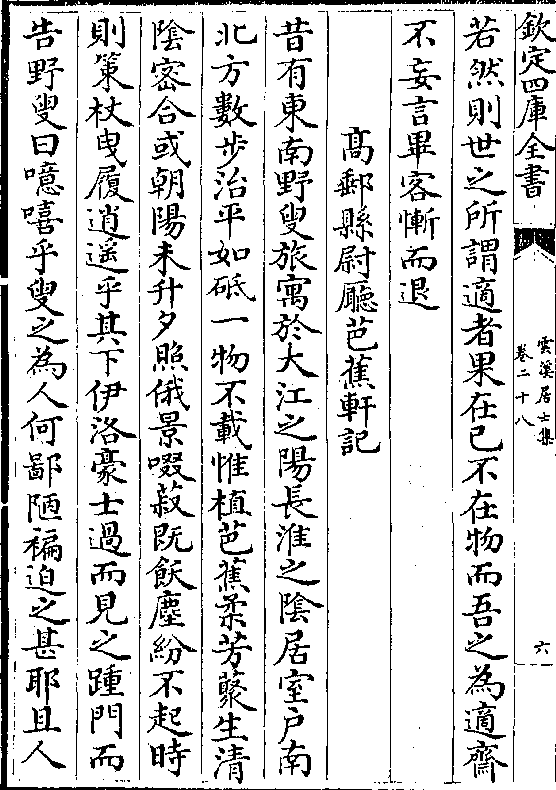 欽定四庫全書
雲溪居士集
卷二十八
六
若然則世之所謂適者果在已不在物而吾之為適齋
不妄言畢客慚而退
高郵縣尉廳芭蕉軒記
昔有東南野叟旅寓於大江之陽長淮之陰居室戶南
北方數步治平如砥一物不載惟植芭蕉柔芳藂生清
陰密合或朝陽未升夕照俄景啜菽既飫塵紛不起時
則策杖曳履逍遥乎其下伊洛豪士過而見之踵門而
告野叟曰噫嘻乎叟之為人何鄙陋褊迫之甚耶且人